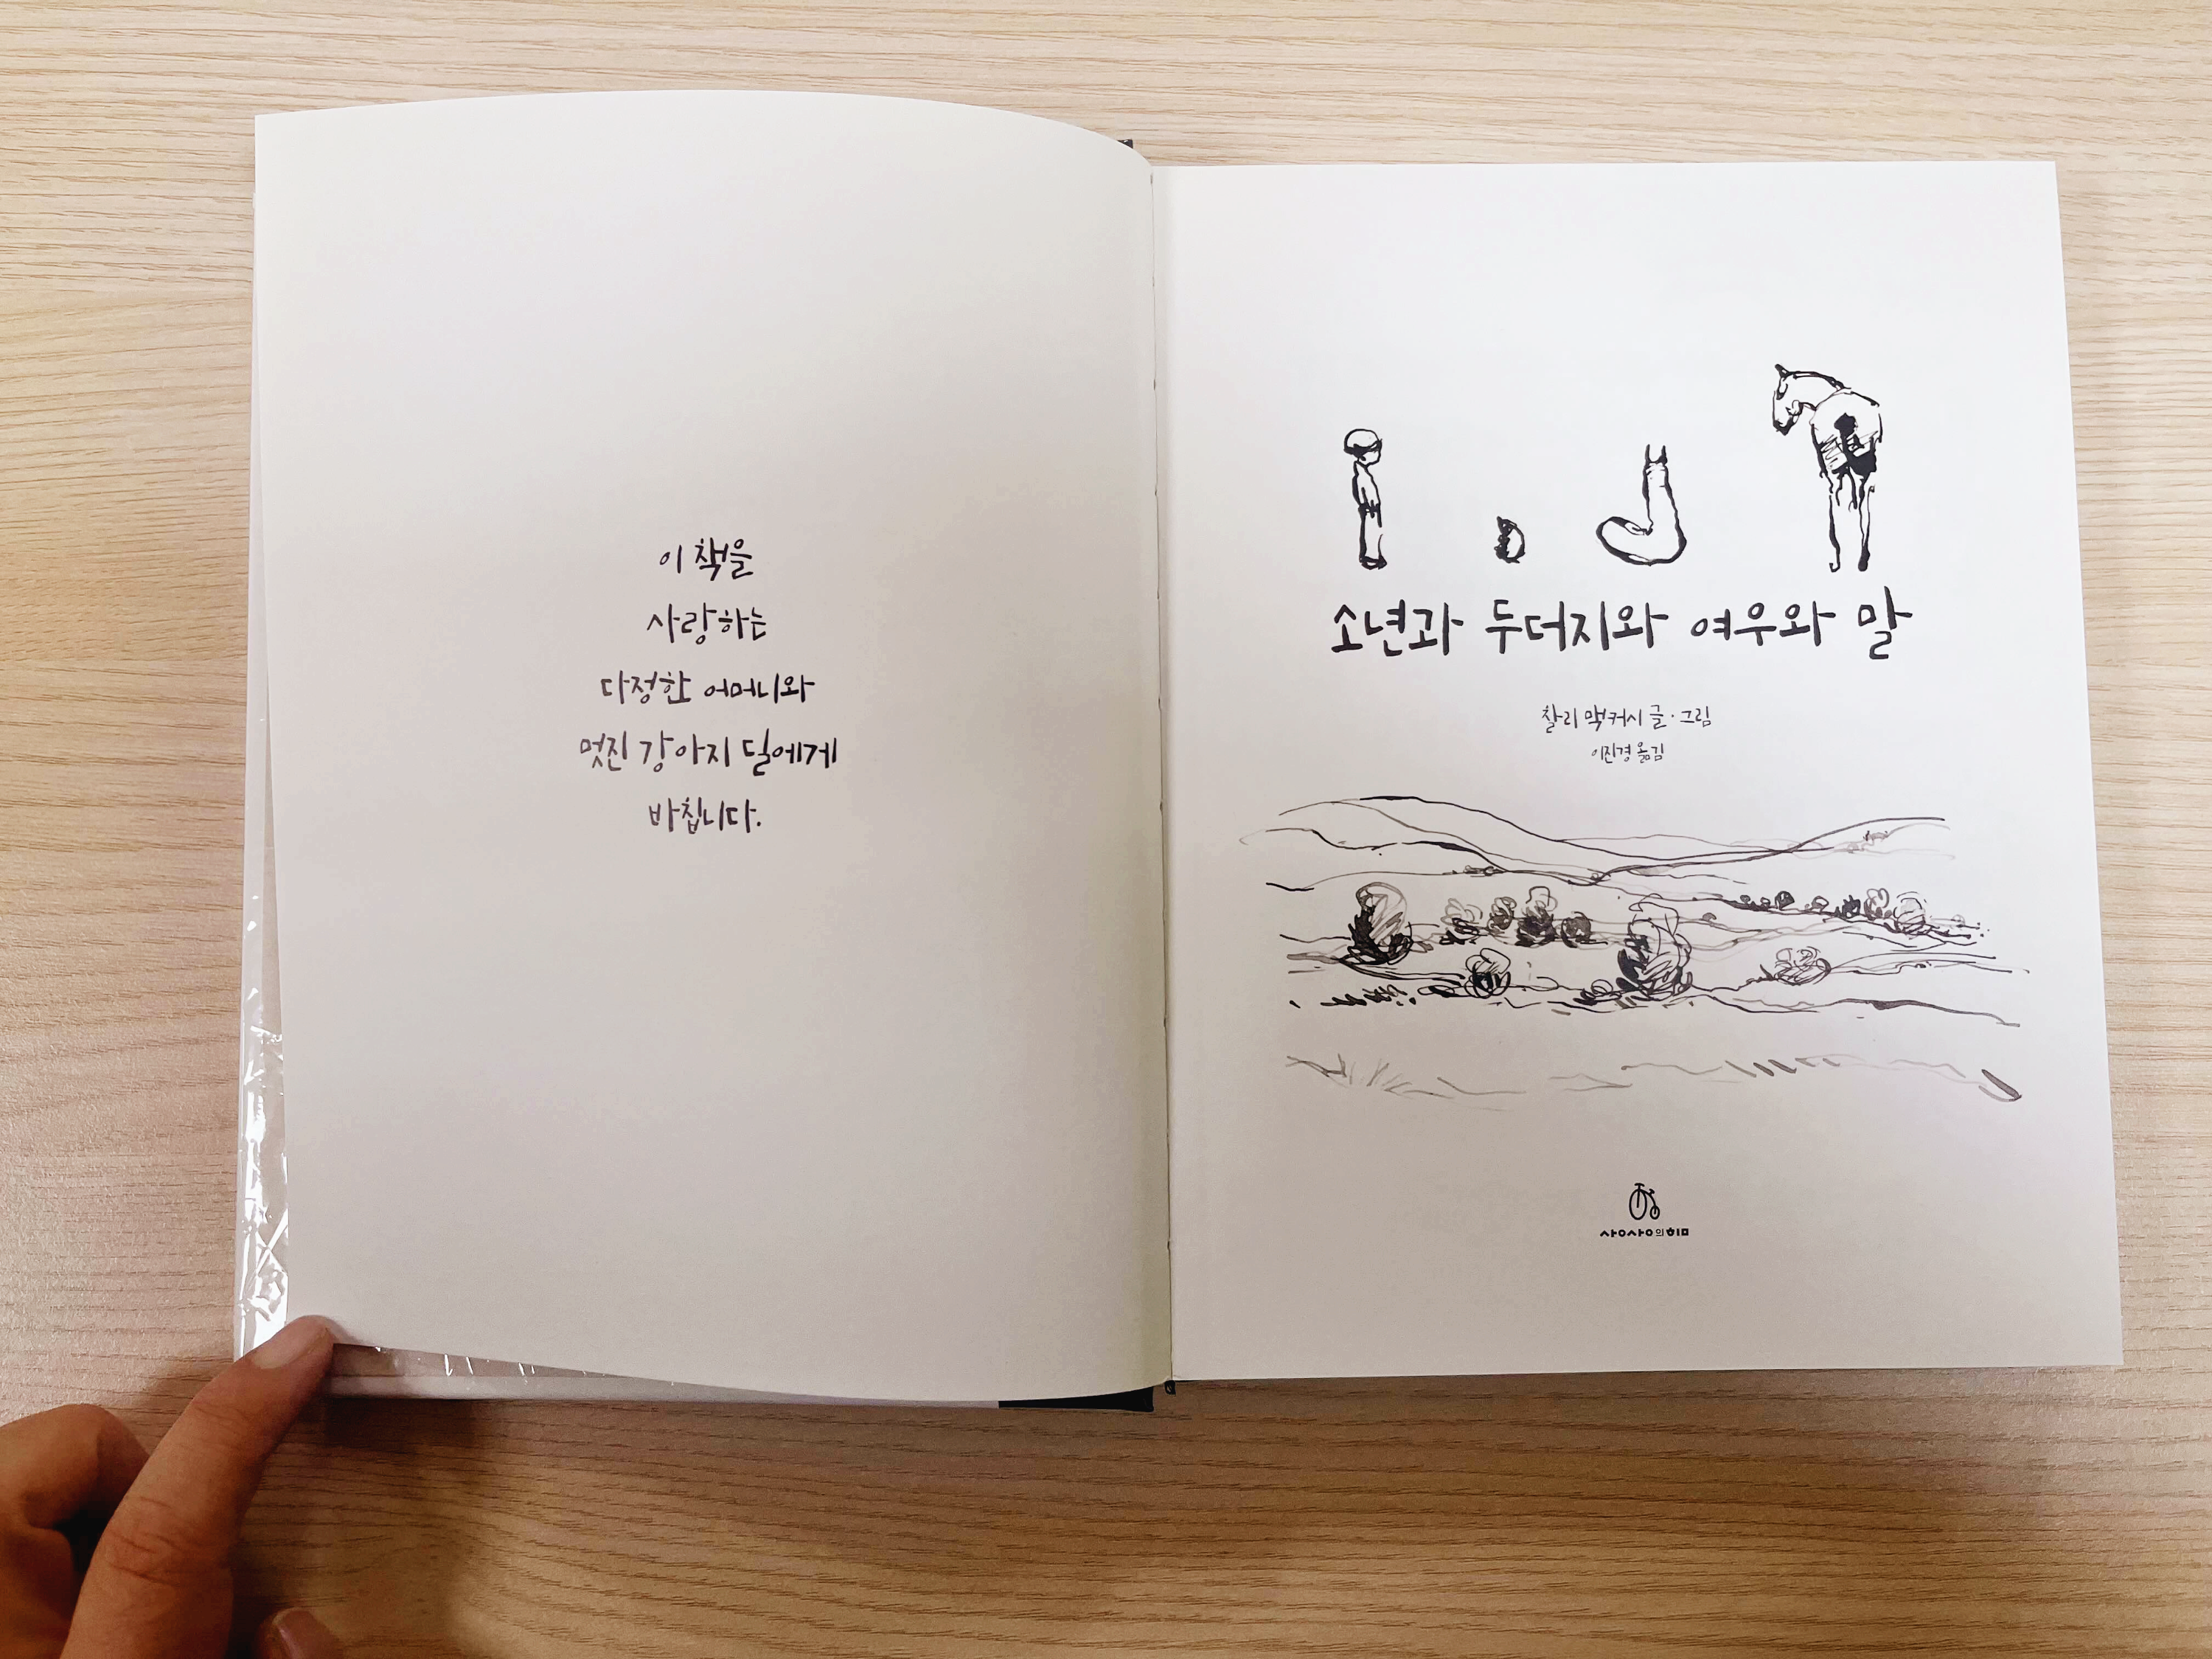 이 책을
사랑하는
다정한 어머니와
멋진 강아지 딜에게
바칩니다.
소년과 두더지와 여우와 말
찰리 맥커시 글·그림
이진경 옮김
상상의힘